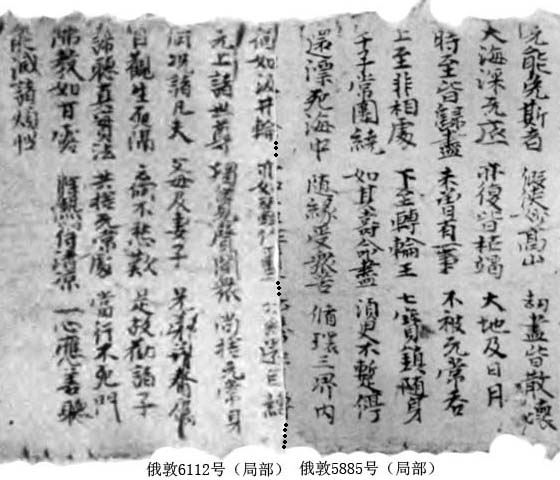 无能免斯者 假使妙高山 劫盡皆散壞
大海深无底 亦復皆枯竭 大地及日月
時至皆歸盡 未曾有一事 不被无常吞
上至非相處 下至轉輪王 七寶鎮隨身
千子常圍繞 如其壽命盡 須臾不暫停
還漂死海中 随緣受衆苦 循環三界內
如汲井輪 亦如蠶作繭 吐絲還自纏
无上諸世尊 獨覺聲聞衆 尚捨无常身
何況諸凡夫 父母及妻子 兄弟諸眷属
目觀生死隔 云何不愁歎 是故勸諸子
諦聽真實法 共捨无常處 當行不死門
佛教如甘露 除熱得清凉 一心應善聽
能滅諸煩惱
俄敦6112号（局部） 俄敦5885号（局部）